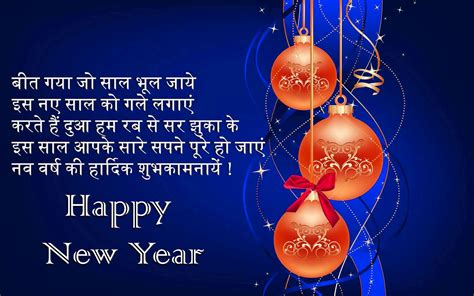 बीत गया जो साल भूल जाये
इस नए साल को गले लगाएं
करते हैं दुआ हम रब से सर झुका के
इस साल आपके सारे सपने पूरे हो जाएं
नव वर्ष की हार्दिक शुभकामनायें !
Happy
New Year